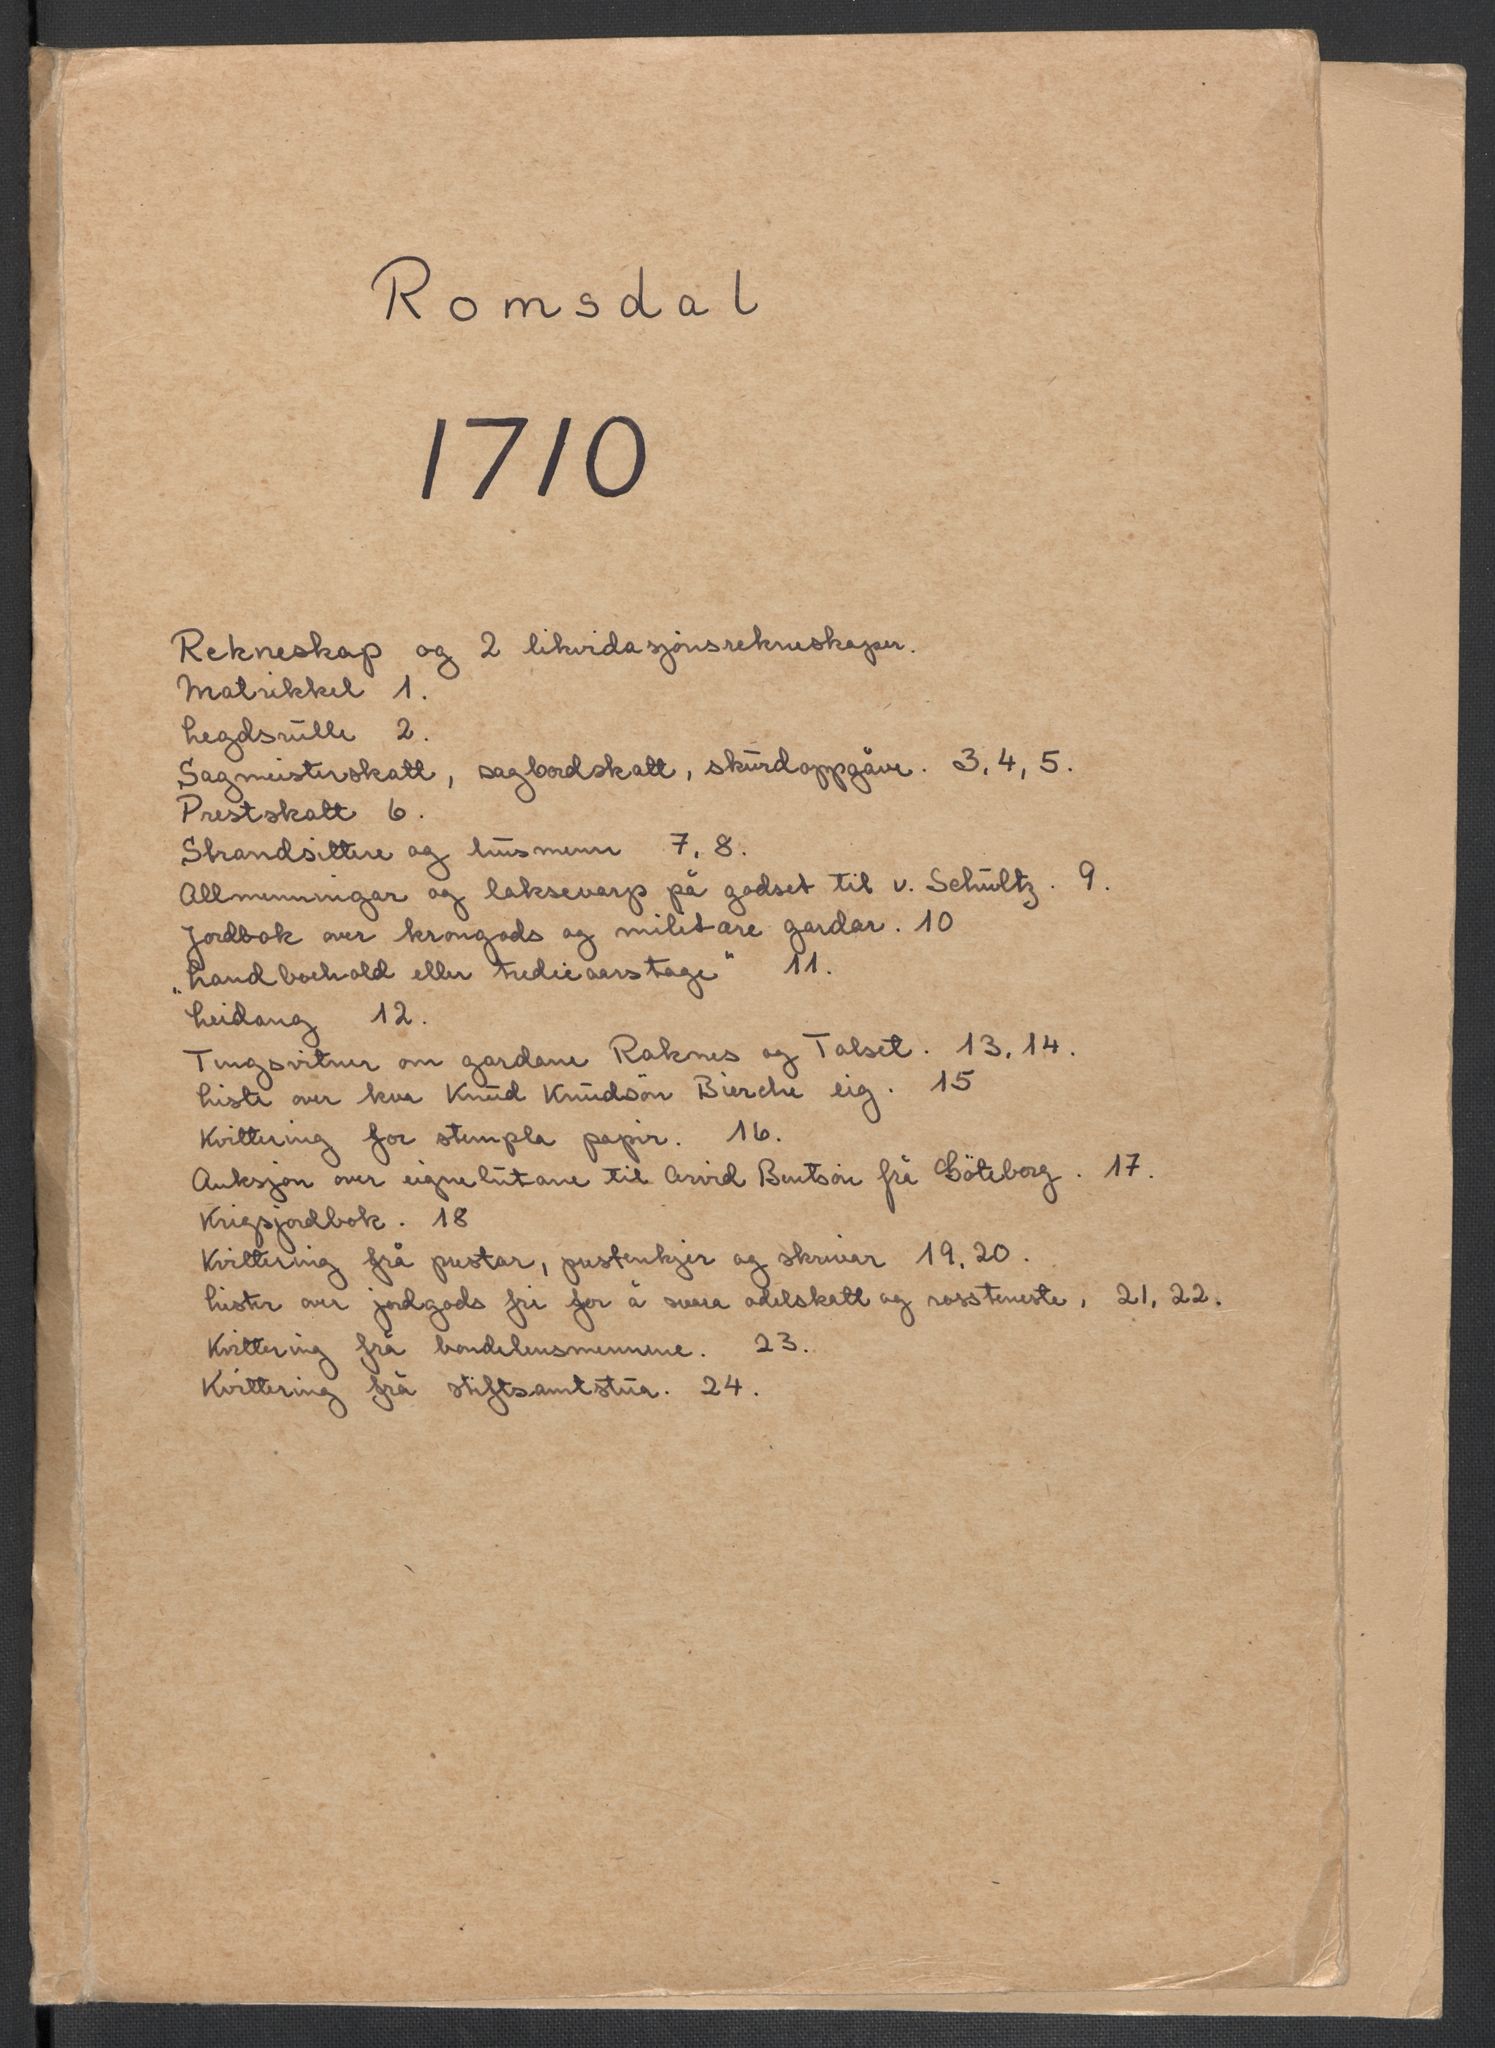 Romsdal
1710
Rekneskap og 2 likvidasjonsrekneskaper.
Matrikkel 1.
Legdsrulle 2.
Sagmeisterskatt, sagbordskatt, skurdoppgåve. 3, 4, 5.
Prestskatt 6.
Strandsittere og husmenn 7, 8.
Allmenningar og laksevarp på godset til v. Schultz. 9.
Jordbok over krongods og militære gardar. 10
„Landboehold eller tredieaarstage" 11.
Leidang 12.
Tingsvitner om gardane Raknes og Talset. 13, 14.
Liste over kva Knud Knudsön Bierche eig. 15
Kvittering for stempla papir. 16.
Auksjon over eignelutane til Arvid Bentsön frå Göteborg. 17.
Krigsjordbok. 18
Kvittering frå prestar, prestenkjer og skrivar 19, 20.
Lister over jordgods fri for å svara odelskatt og rossteneste, 21, 22.
Kvittering frå bondelensmennene. 23.
Kvittering frå stiftsamtstua. 24.